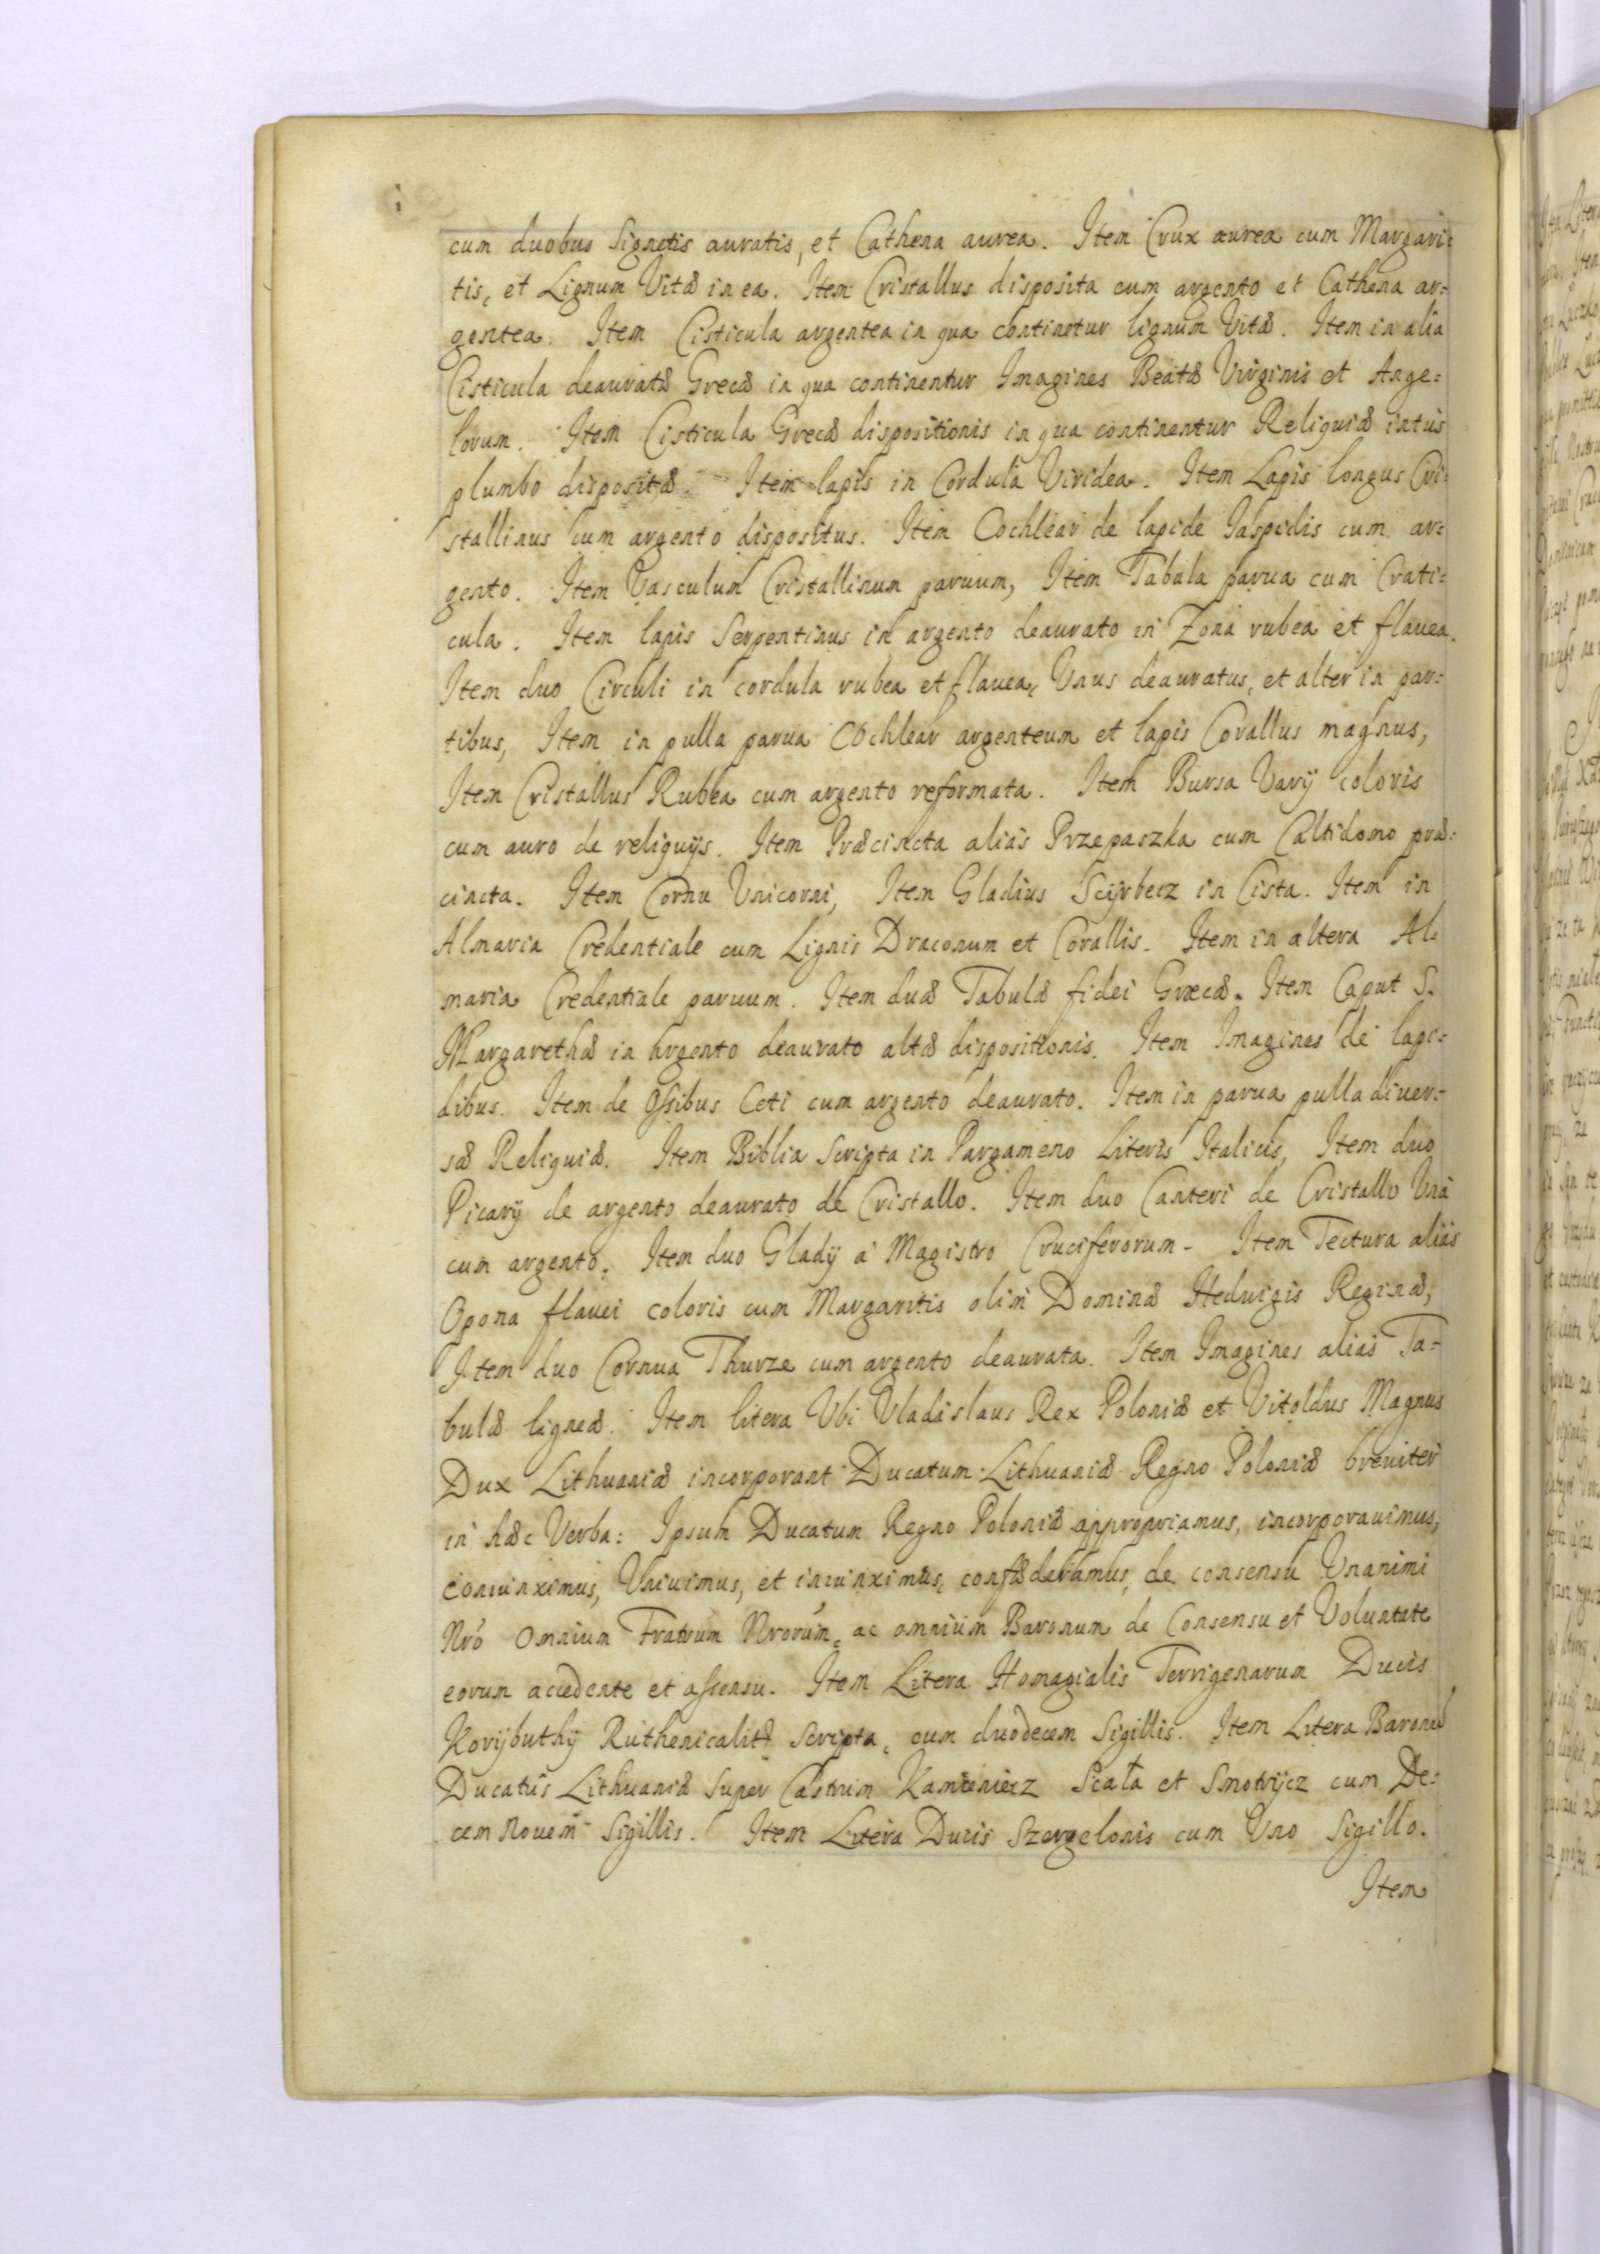 cum duobus Signetis auratis, et Cathena aurea. Item Crux aurea cum Margari=
tis, et Lignum Vitæ in ea. Item Cristallus disposita cum argento et Cathena ar=
gentea. Item Cisticula argentea in qua continetur lignum Vitæ. Item in alia
Cisticula deauratæ Grecæ in qua continentur Imagines Beatæ Virginis et Ange=
lorum. Item Cisticula Grecæ dispositionis in qua continentur Reliquiæ intus
plumbo dispositæ. Item lapis in Cordula Viridea. Item Lapis longus Cri=
stallinus cum argento dispositus. Item Cochlear de lapide Jaspidis cum ar=
gento. Item Vasculum Cristallinum paruum, Item Tabula parua cum Crati=
cula. Item lapis Serpentinus in argento deaurato in Zona rubea et flauea.
Item duo Circuli in cordula rubea et flauea, Unus deauratus, et alter in par=
tibus, Item in pulla parua Cochlear argenteum et lapis Corallus magnus,
Item Cristallus Rubea cum argento reformata. Item Bursa Varij coloris
cum auro de reliquijs. Item Præcincta alias Przepaszka cum Caltidono præ=
cincta. Item Cornu Unicorni, Item Gladius Sczyrbecz in Cista. Item in
Almaria Credentiale cum Lignis Draconum et Corallis. Item in altera Al=
maria Credentiale paruum. Item duæ Tabulæ fidei Græcæ. Item Caput S.
Margarethæ in argento deaurato altæ dispositionis. Item Imagines de lapi=
dibus. Item de Ossibus Ceti cum argento deaurato. Item in parua pulla diuer=
sæ Reliquiæ. Item Biblia Scripta in Pargameno Literis Italicis, Item duo
Picarij de argento deaurato de Cristallo. Item duo Canteri de Cristallo Una
cum argento. Item duo Gladij à Magistro Cruciferorum. Item Tectura alias
Opona flauei coloris cum Margaritis olim Dominæ Heduigis Reginæ,
Item duo Cornua Thurze cum argento deaurata. Item Imagines alias Ta=
bulæ ligneæ. Item litera Ubi Vladislaus Rex Poloniæ et Vitoldus Magnus
Dux Lithuaniæ incorporant Ducatum Lithuaniæ Regno Poloniæ breuiter
in hæc Verba: Ipsum Ducatum Regno Poloniæ appropriamus, incorporauimus,
coniunximus, Univimus, et inuinximus, confœderamus, de consensu Unanimi
Nrõ omnium Fratrum Nrorum, ac omnium Baronum de Consensu et Voluntate
eorum accedente et assensu. Item Litera Homagialis Terrigenarum Ducis
Korijbuthij Ruthenicalitr scripta, cum duodecem Sigillis. Item Litera Baronum
Ducatûs Lithuaniæ Super Castrum Kamieniecz Scala et Smotrijcz cum De=
cem nouem Sigillis. Item Litera Ducis Szergelonis cum Uno Sigillo.
Item